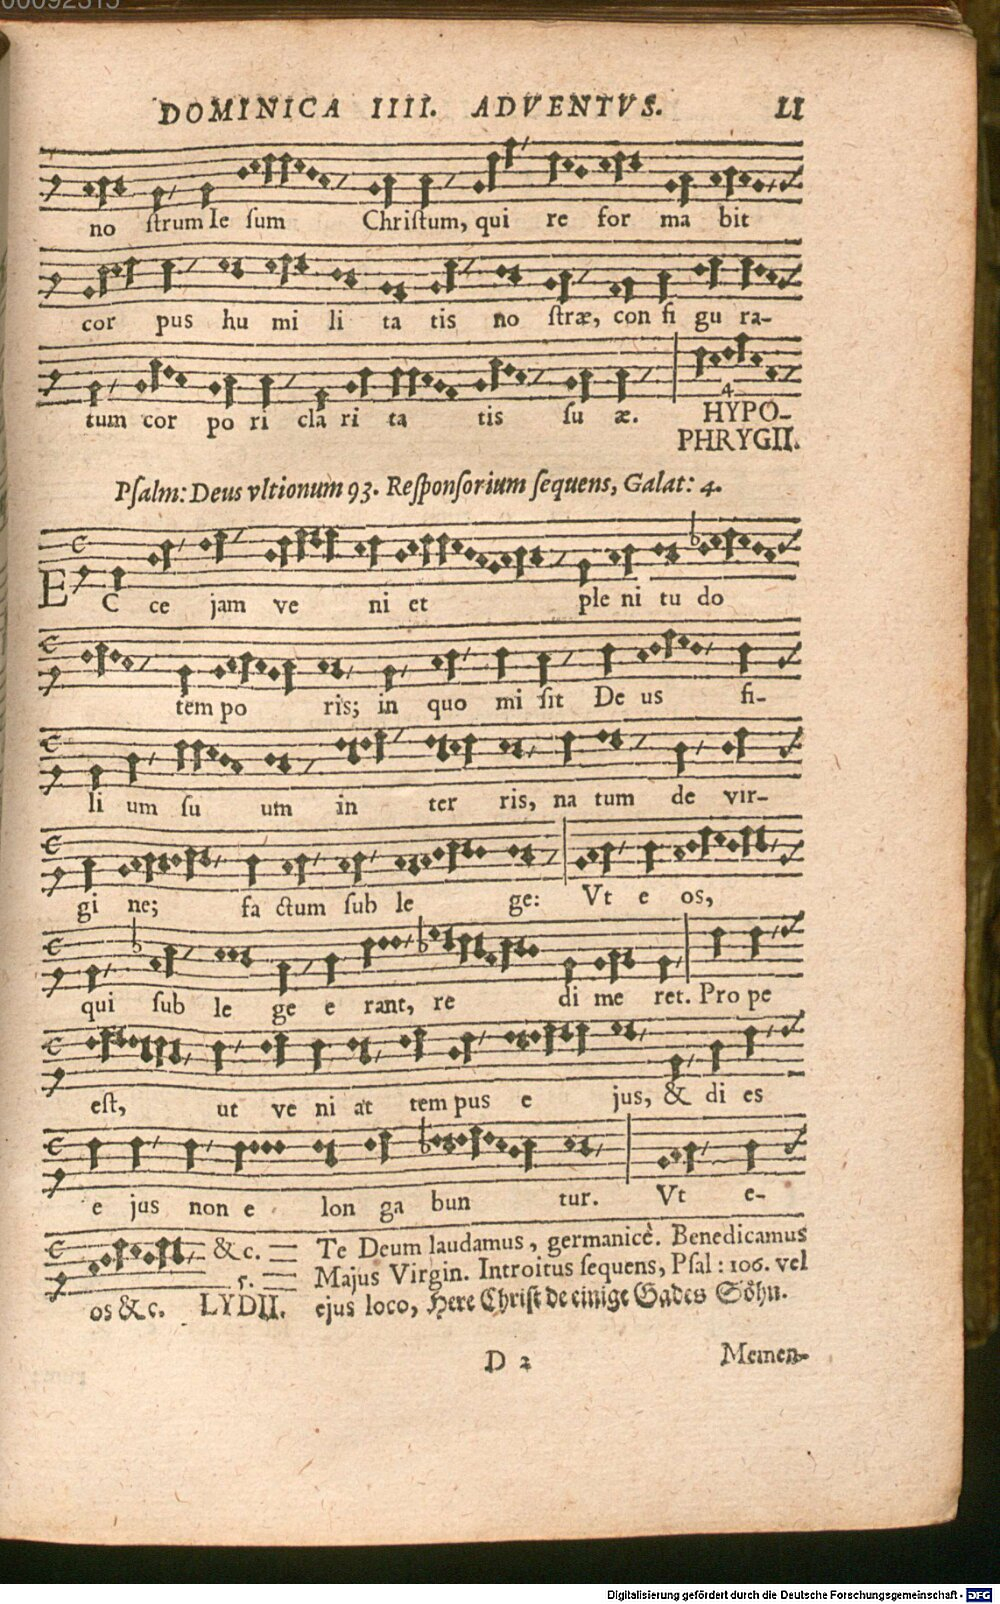 00092315
DOMINICA IIII. ADVENTVS. LI
no ſtrum Ie ſum Chriſtum, qui re for ma bit
cor pus hu mi li ta tis no ſtræ, con fi gu ra-
tum cor po ri cla ri ta tis ſu æ. 4. HYPO-
PHRYGII.
Pſalm: Deus vltionum 93. Reſponſorium ſequens, Galat: 4.
EC ce jam ve ni et ple ni tu do
tem po ris; in quo mi ſit De us fi-
li um ſu um in ter ris, na tum de vir-
gi ne; fa ctum ſub le ge: Vt e os,
qui ſub le ge e rant, re di me ret. Pro pe
eſt, ut ve ni at tem pus e jus, & di es
e jus non e lon ga bun tur. Vt e-
&c. Te Deum laudamus, germanicè. Benedicamus
5. Majus Virgin. Introitus ſequens, Pſal: 106. vel
os &c. LYDII. ejus loco, Here Chriſt de einige Gades Söhn.
D 2 Memen-
Digitalisierung gefördert durch die Deutsche Forschungsgemeinschaft - DFG